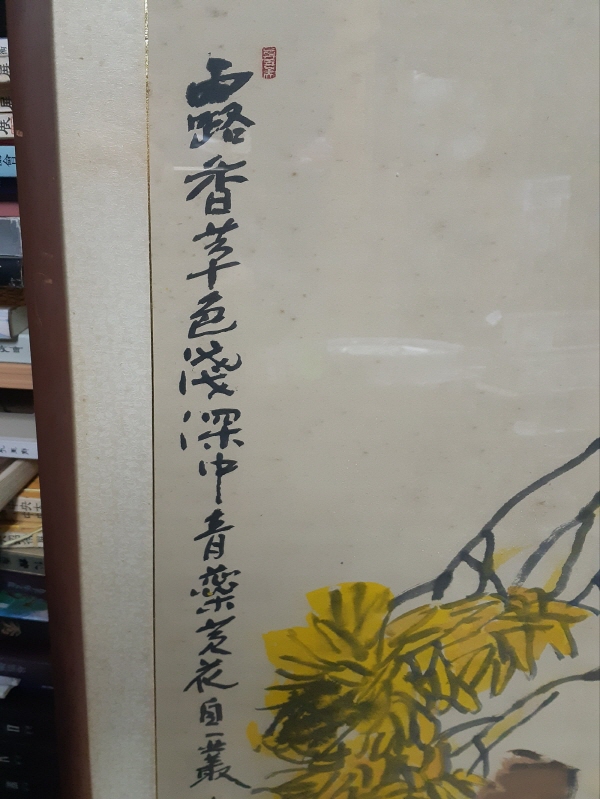 露香草色淺深中青葉黃花自一叢